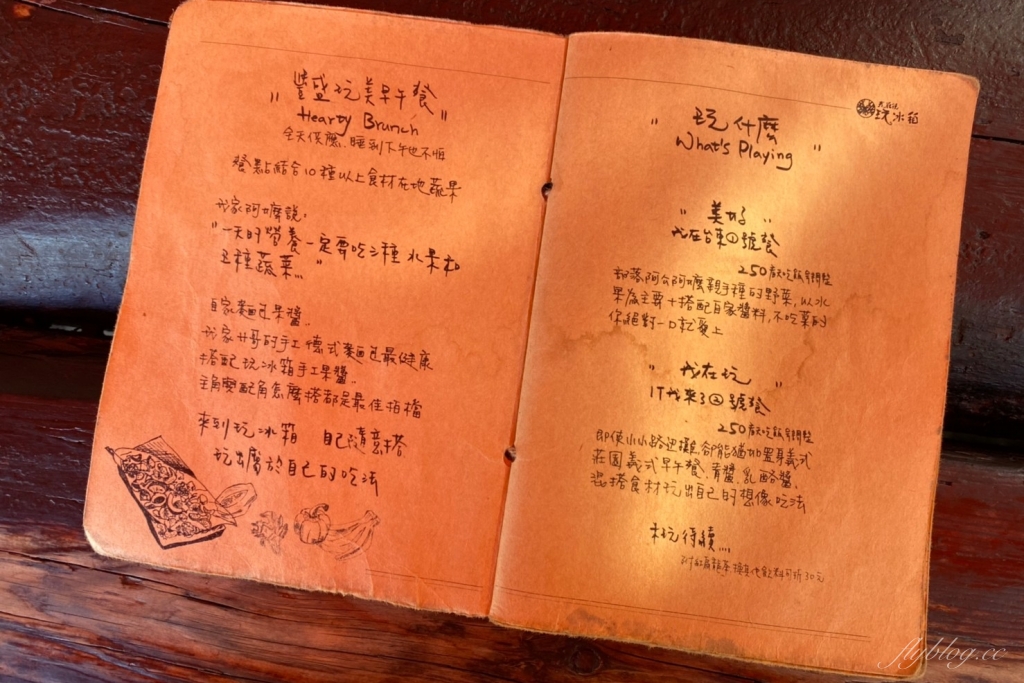 "豐盛玩美早午餐"
Hearty Brunch
全天供應、睡到下午也不怕
餐點結合10種以上食材在地蔬果
我家阿嬤說,
"一天的營養一定要吃三種水果和
五種蔬菜..."
自家麵包果醬..
我家廾哥的手工德式麵包最健康
搭配玩冰箱手工果醬..
主角與配角怎麼搭都是最佳拍檔
來到玩冰箱 自己隨意搭
玩出屬於自己的吃法
玩冰箱
"玩什麼"
What's Playing
"美好"
我在台東①號餐
250
部落阿公阿嬤親手種的野菜,以水
果為主要+搭配自家醬料,不吃菜的
你絕對一口就愛上
"我在玩"
IT我來了②號餐
250
即使小小路迅攤,卻能猶如置身義式
莊園義式早午餐、青醬、乳酪醬、
混搭食材玩出自己的想像吃法
待續...
30元
flyblog.cc